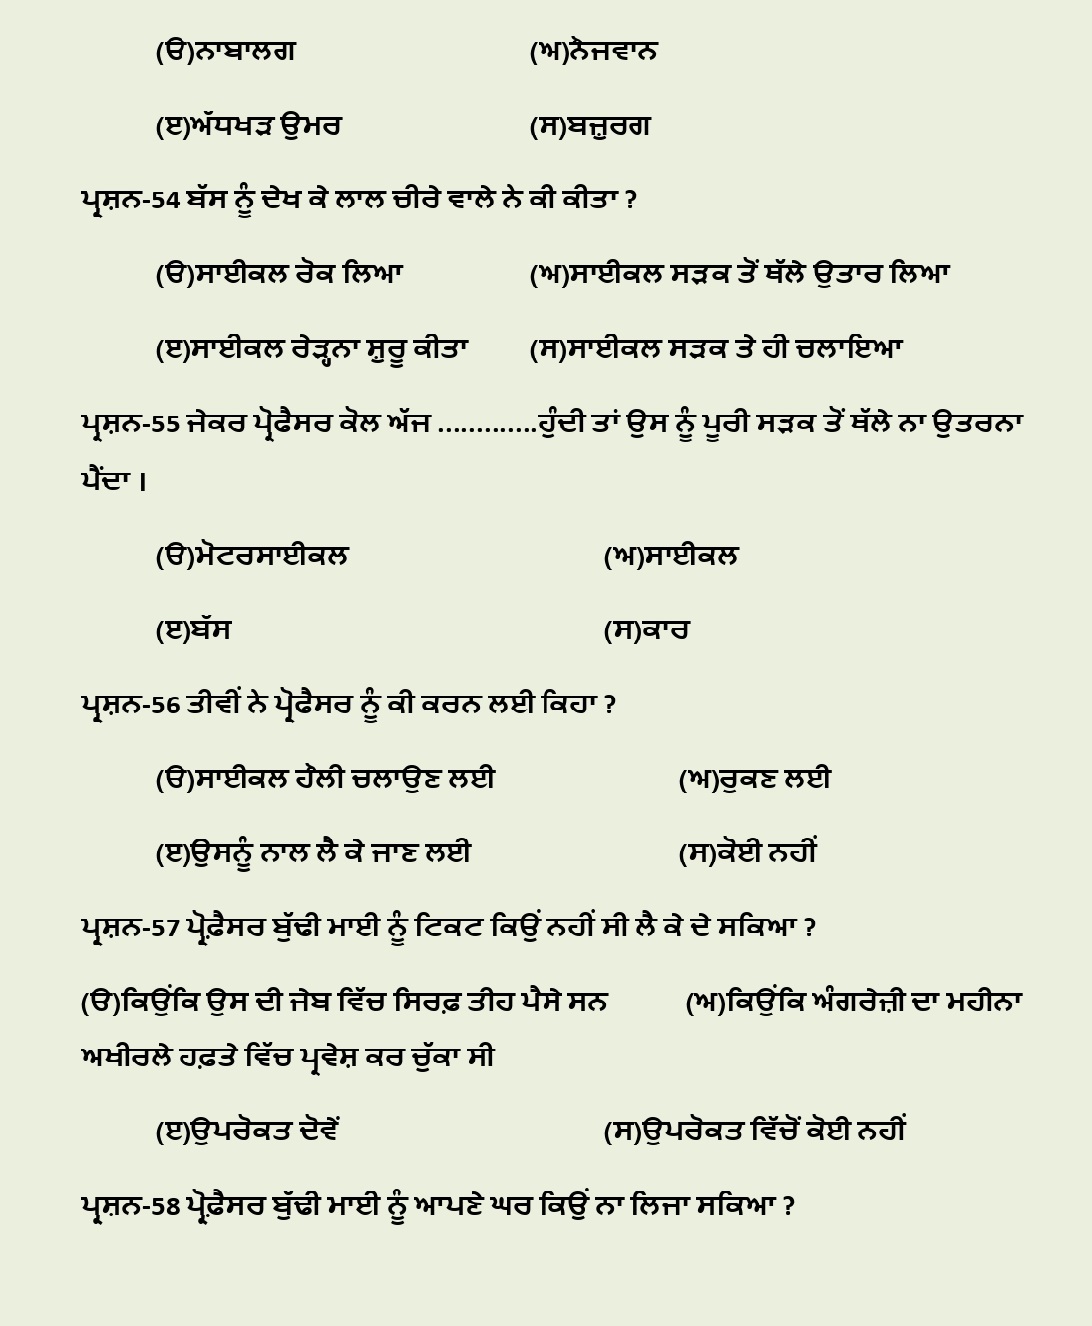 (ੳ)ਨਾਬਾਲਗ (ਅ)ਨੌਜਵਾਨ
(ੲ)ਅੱਧਖੜ ਉਮਰ (ਸ)ਬਜ਼ੁਰਗ
ਪ੍ਰਸ਼ਨ-54 ਬੱਸ ਨੂੰ ਦੇਖ ਕੇ ਲਾਲ ਚੀਰੇ ਵਾਲੇ ਨੇ ਕੀ ਕੀਤਾ ?
(ੳ)ਸਾਈਕਲ ਰੋਕ ਲਿਆ (ਅ)ਸਾਈਕਲ ਸੜਕ ਤੋਂ ਥੱਲੇ ਉਤਾਰ ਲਿਆ
(ੲ)ਸਾਈਕਲ ਰੇੜ੍ਹਨਾ ਸ਼ੁਰੂ ਕੀਤਾ (ਸ)ਸਾਈਕਲ ਸੜਕ ਤੇ ਹੀ ਚਲਾਇਆ
ਪ੍ਰਸ਼ਨ-55 ਜੇਕਰ ਪ੍ਰੋਫੈਸਰ ਕੋਲ ਅੱਜ .............ਹੁੰਦੀ ਤਾਂ ਉਸ ਨੂੰ ਪੂਰੀ ਸੜਕ ਤੋਂ ਥੱਲੇ ਨਾ ਉਤਰਨਾ
ਪੈਂਦਾ ।
(ੳ)ਮੋਟਰਸਾਈਕਲ (ਅ)ਸਾਈਕਲ
(ੲ)ਬੱਸ (ਸ)ਕਾਰ
ਪ੍ਰਸ਼ਨ-56 ਤੀਵੀਂ ਨੇ ਪ੍ਰੋਫੈਸਰ ਨੂੰ ਕੀ ਕਰਨ ਲਈ ਕਿਹਾ ?
(ੳ)ਸਾਈਕਲ ਹੌਲੀ ਚਲਾਉਣ ਲਈ (ਅ)ਰੁਕਣ ਲਈ
(ੲ)ਉਸਨੂੰ ਨਾਲ ਲੈ ਕੇ ਜਾਣ ਲਈ (ਸ)ਕੋਈ ਨਹੀਂ
ਪ੍ਰਸ਼ਨ-57 ਪ੍ਰੋਫ਼ੈਸਰ ਬੁੱਢੀ ਮਾਈ ਨੂੰ ਟਿਕਟ ਕਿਉਂ ਨਹੀਂ ਸੀ ਲੈ ਕੇ ਦੇ ਸਕਿਆ ?
(ੳ)ਕਿਉਂਕਿ ਉਸ ਦੀ ਜੇਬ ਵਿੱਚ ਸਿਰਫ਼ ਤੀਹ ਪੈਸੇ ਸਨ (ਅ)ਕਿਉਂਕਿ ਅੰਗਰੇਜ਼ੀ ਦਾ ਮਹੀਨਾ
ਅਖੀਰਲੇ ਹਫ਼ਤੇ ਵਿੱਚ ਪ੍ਰਵੇਸ਼ ਕਰ ਚੁੱਕਾ ਸੀ
(ੲ)ਉਪਰੋਕਤ ਦੋਵੇਂ (ਸ)ਉਪਰੋਕਤ ਵਿੱਚੋਂ ਕੋਈ ਨਹੀਂ
ਪ੍ਰਸ਼ਨ-58 ਪ੍ਰੋਫ਼ੈਸਰ ਬੁੱਢੀ ਮਾਈ ਨੂੰ ਆਪਣੇ ਘਰ ਕਿਉਂ ਨਾ ਲਿਜਾ ਸਕਿਆ ?